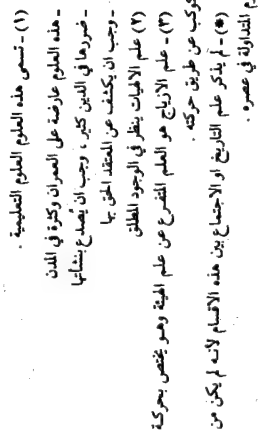 (١) - تسمى هذه العلوم العلوم التعليمية .
- هذه العلوم عارضة على العمران وكثرة في المدن
- ضررها في الدين كثير ، وجب ان يُصدع بشأنها
- وجب ان يكشف عن المعتقد الحق بها
(٢) علم الالهيات ينظر في الوجود المطلق
(٣) - علم الازياج هو العلم المتفرع عن علم الهيئة وهو يختص بحركة
كوكب عن طريق حركته .
(*) - لم يذكر علم التاريخ او الاجتماع بين هذه الاقسام لأنه لم يكن من
م المتداولة في عصره .